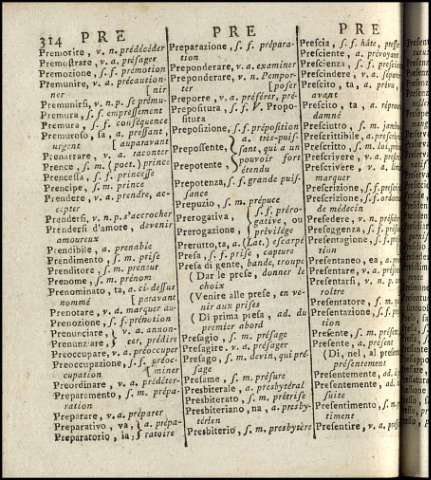 314 PRE PRE PRE
Premorire, v. n. prédécéder
Premostrare, v. a. présager
Premozione, s. f. prémotion
Premunire, v. a. précaution-
ner [nir
Premunirsi, v. n. p. se prému-
Premura, s. f. empressement
Premura, s. f. conséquence
Premuroso, sa, a. pressant,
urgent [auparavant
Prenarrare, v. a. raconter
Prence, s. m. (poet.) prince
Prencessa, s. f. princesse
Prencipe, s. m. prince
Prendere, v. a. prendre, ac-
cepter
Prendersi, v. n. p. s'accrocher
Prendersi d'amore, devenir
amoureux
Prendibile, a. prenable
Prendimento, s. m. prise
Prenditore, s. m. preneur
Prenome, s. m. prénom
Prenominato, ta, a. ci-dessus
nommé [paravant
Prenotare, v. a. marquer au-
Prenozione, s. f. prénotion
Prenunciare, v. a. annon-
Prenunziare, cer, prédire
Preoccupare, v. a. préoccuper
Preoccupazione, s. f. préoc-
cupation [miner
Preordinare, v. a. prédéter-
Preparamento, s. m. prépa-
ration
Preparare, v. a. préparer
Preparativo, va, a. prépa-
Preparatorio, ia, ratoire
Preparazione, s. f. prépara-
tion
Preponderare, v. a. examiner
Preponderare, v. n. l'empor-
ter [poser
Preporre, v. a. préférer, pré-
Prepositura, s. f. V. Propo-
situra
Preposizione, s. f. préposition
Prepossente, a. très-puis-
sant, qui a un
Prepotente, pouvoir fort
étendu
Prepotenza, s. f. grande puis-
sance
Prepuzio, s. m. prépuce
Prerogativa, s. f. préro-
gative, ou
Prerogazione, privilége
Prerutto, ta, a. (Lat.) escarpé
Presa, s. f. prise, capture
Presa di gente, bande, troupe
(Dar le prese, donner le
choix
(Venire alle prese, en ve-
nir aux prises
(Di prima presa, ad. du
premier abord
Presagio, s. m. présage
Presagire, v. a. présager
Presago, s. m. devin, qui pré-
sage
Presame, s. m. présure
Presbiterale, a. presbytéral
Presbiterato, s. m. prêtrise
Presbiteriano, na, a. presby-
térien
Presbiterio, s. m. presbytère
Prescia, s. f. hâte,
Presciente, a.
Prescienza, s. f.
Prescindere, v. a.
Prescito, ta, a.
Prescito, ta, a.
damné
Presciutto, s. m.
Prescrittibile, a.
Prescritto, s. m.
Prescrivere, v. a.
Prescrivere, v. a.
marquer
Prescrizione, s. f.
Prescrizione, s. f.
de médecin
Presedere, v. n.
Preseggenza, s. f.
Presentagione, s. f.
tion
Presentaneo, ea, a.
Presentare, v. a.
Presentarsi, v. n.
roître
Presentatore, s. m.
Presentazione, s. f.
tion
Presente, s. m.
Presente, a. présent
(Di, nel, al
présentement
Presentemente, ad.
Presentemente, ad.
suite
Presentimento, s. m.
timent
Presentire, v. a.